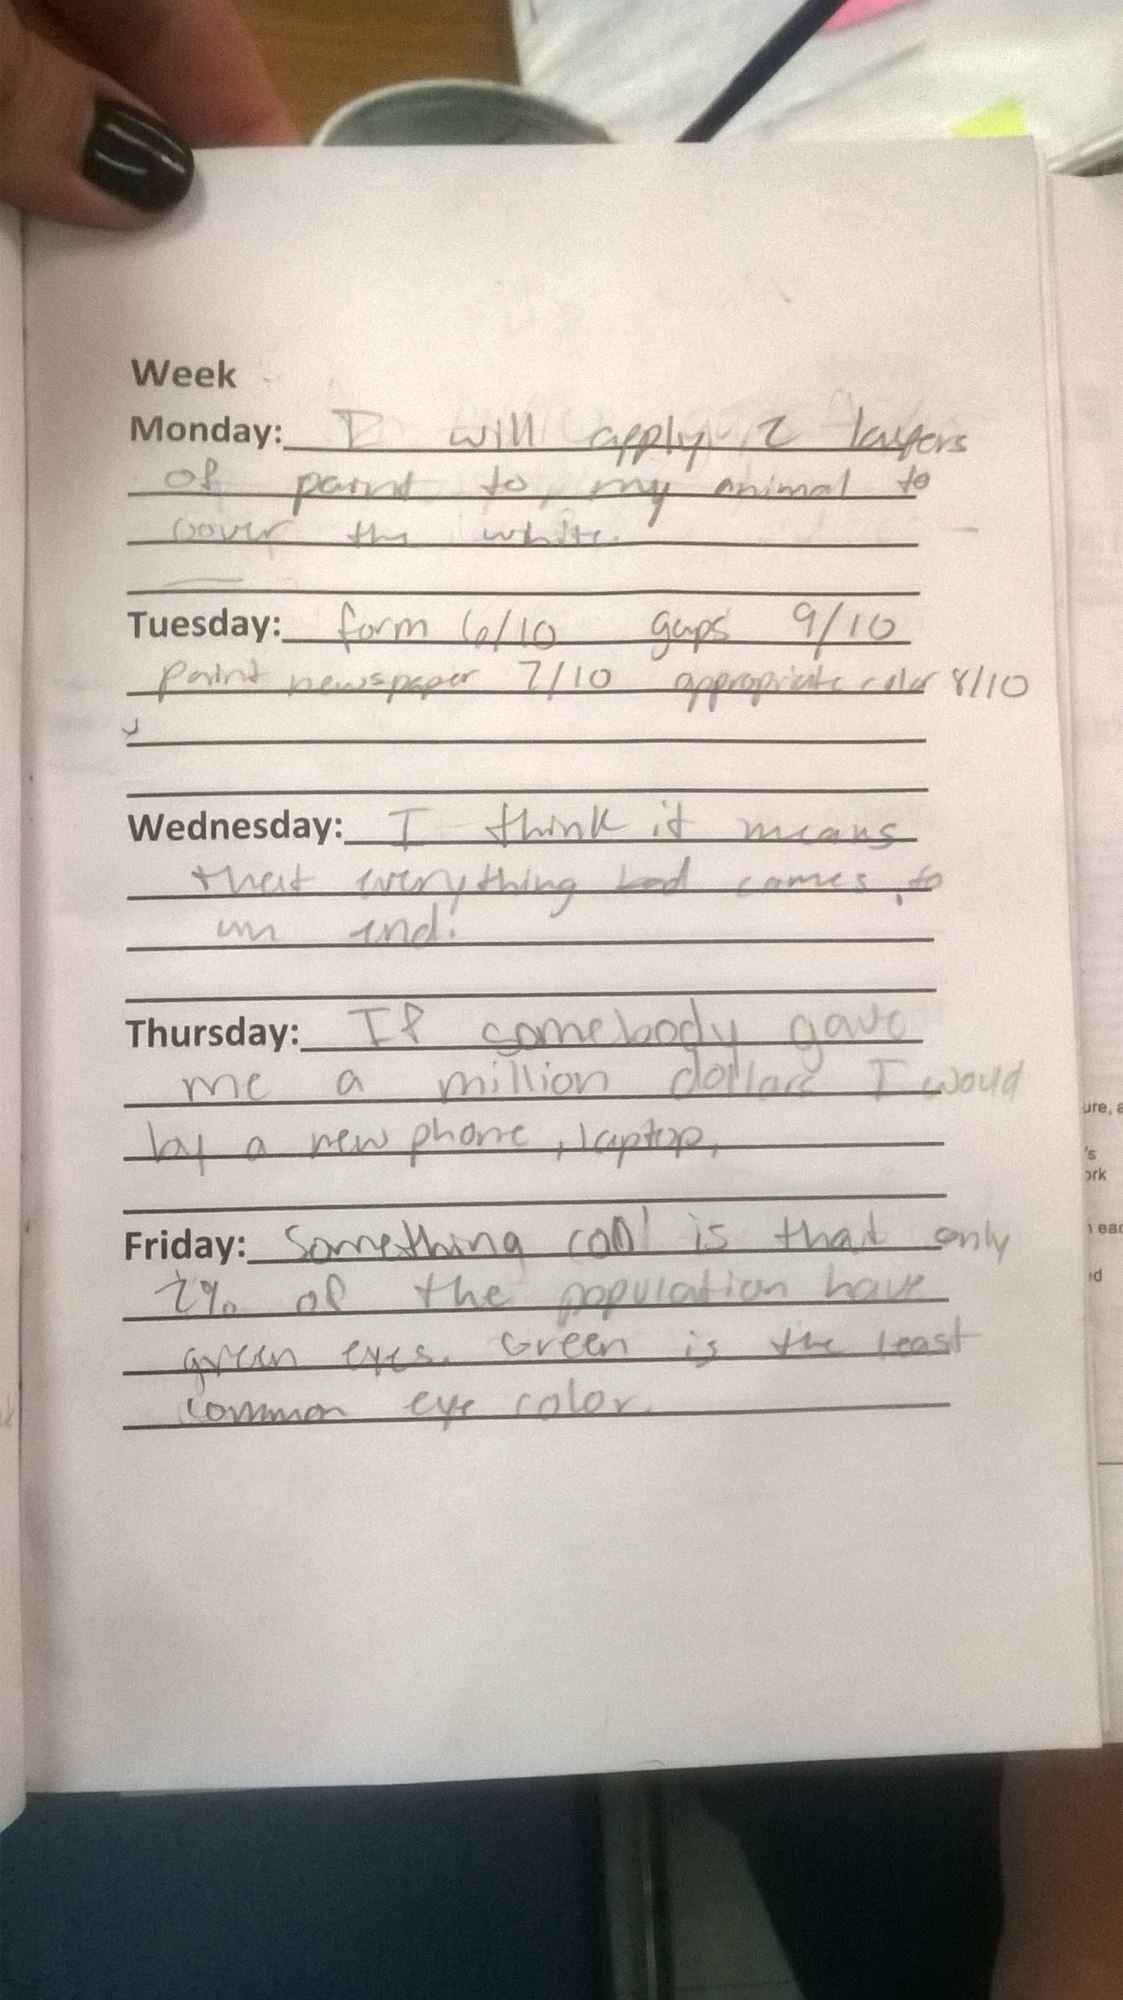 Week
Monday: I will apply 2 layers
of paint to my animal to
cover the white.
Tuesday: form 6/10 gaps 9/10
paint newspaper 7/10 appropriate color 8/10
Wednesday: I think it means
that everything bad comes to
an end.
Thursday: If somebody gave
me a million dollars I would
by a new phone, laptop,
Friday: Something cool is that only
2% of the population have
green eyes. Green is the least
common eye color.
ure, a
's
ork
n eac
nd